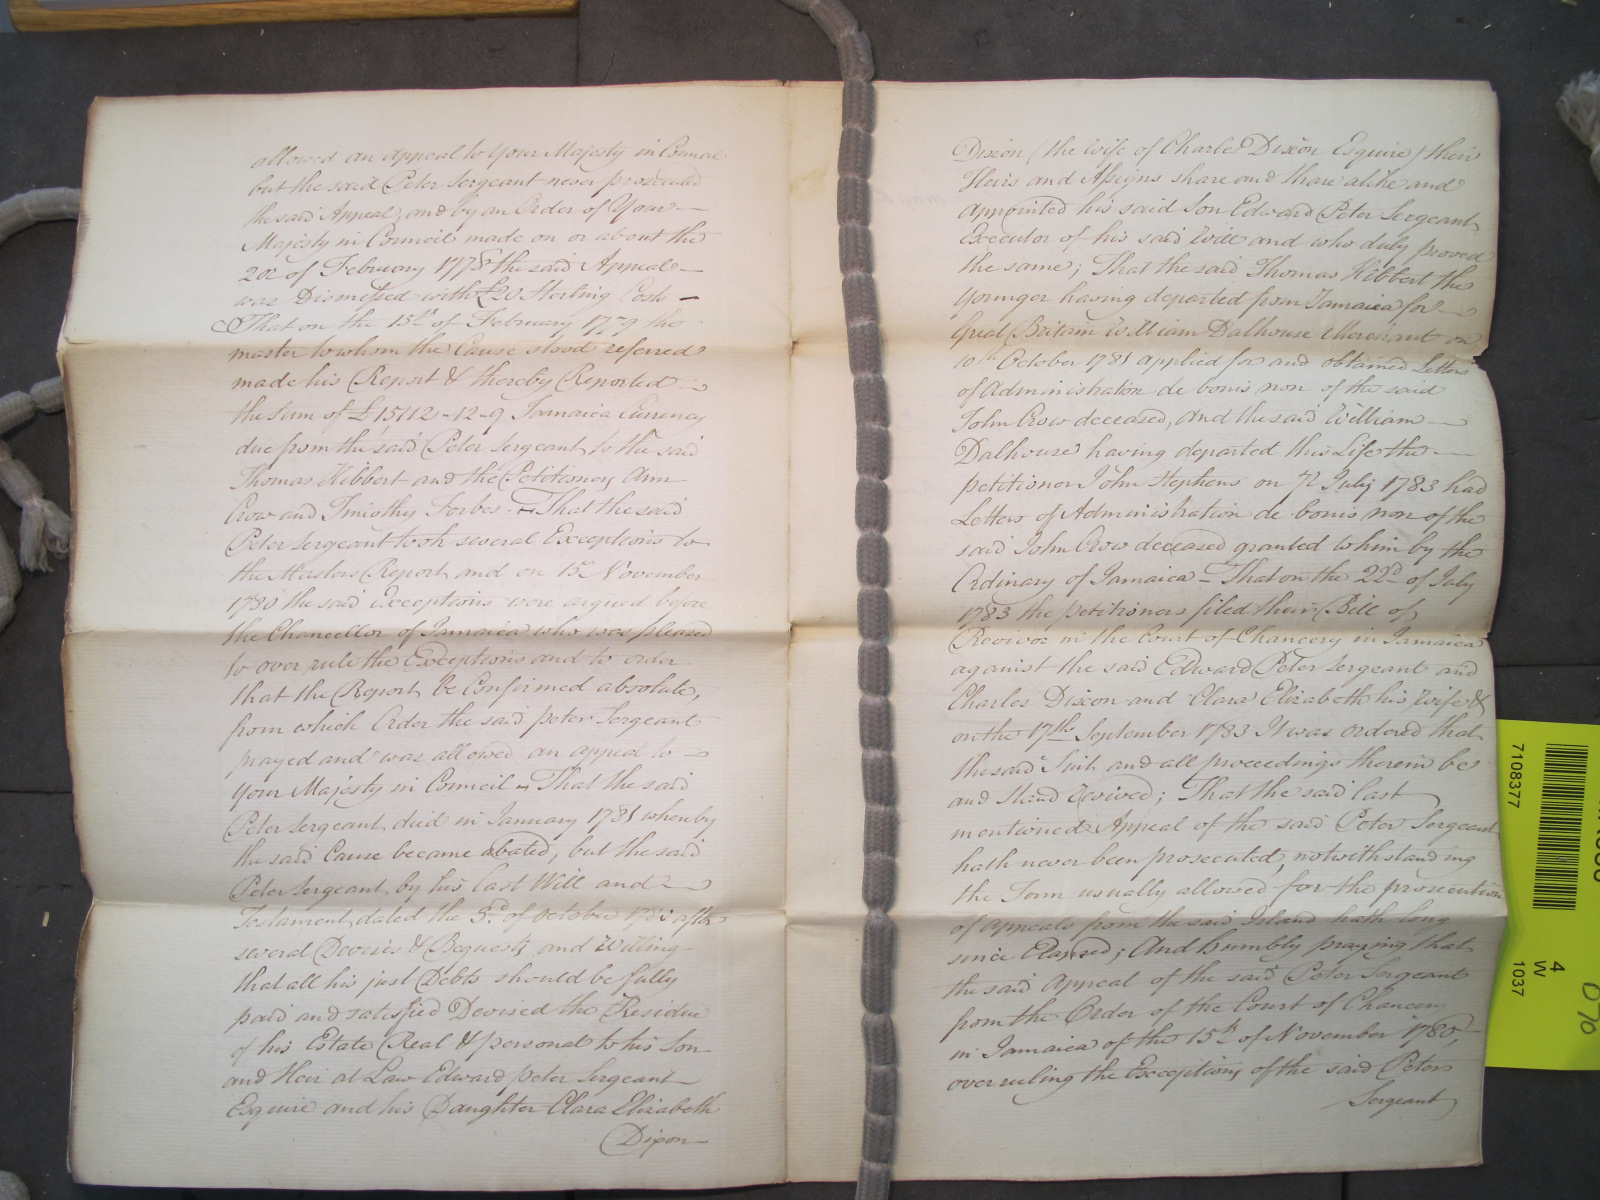 allowed an Appeal to Your Majesty in Council
but the said Peter Sergeant never prosecuted
the said Appeal, and by an Order of Your
Majesty in Council made on or about the
2d of February 1778 the said Appeal
was Dismissed with £20 Sterling Costs
That on the 15th of February 1779 the
master to whom the Cause stood referred
made his Report & thereby Reported
the Sum of £15712-12-9 Jamaica Currency
due from the said Peter Sergeant to the said
Thomas Hibbert and the Petitioners Ann
Crow and Timothy Forbes - That the said
Peter Sergeant took several Exceptions to
the Masters Report and on 15th November
1780 the said exceptions were argued before
the Chancellor of Jamaica who was pleased
to over rule the Exceptions and to order
that the Report be Confirmed absolute,
from which Order the said Peter Sergeant
prayed and was allowed an appeal to
Your Majesty in Council - That the said
Peter Sergeant died in January 1781 whereby
the said Cause became abated, but the said
Peter Sergeant by his last Will and
Testament dated the 3rd of October 1780 after
several Devises & Bequests, and Willing
that all his just Debts should be fully
paid and satisfied Devised the Residue
of his Estate Real & personal to his Son
and Heir at Law Edward Peter Sergeant
Esquire and his Daughter Clara Elizabeth
Dixon
Dixon (the Wife of Charles Dixon Esquire) their
Heirs and Assigns share and share alike and
Appointed his said Son Edward Peter Sergeant
Executor of his said Will and who duly proved
the same; That the said Thomas Hibbert the
Younger having departed from Jamaica for
Great Britain William Dalhouse Merchant on
10th October 1781 applied for and obtained Letters
of Administration de bonis non of the said
John Crow deceased, and the said William
Dalhouse having departed this Life the
petitioner John Stephens on 7th July 1783 had
Letters of Administration de bonis non of the
said John Crow deceased granted to him by the
Ordinary of Jamaica - That on the 22d of July
1783 the petitioners filed their Bill of
Revivor in the Court of Chancery in Jamaica
against the said Edward Peter Sergeant and
Charles Dixon and Clara Elizabeth his wife &
on the 17th September 1783 It was ordered that
the said Suit and all proceedings therein be
and Stand Revived; That the said last
mentioned Appeal of the said Peter Sergeant
hath never been prosecuted, notwithstanding
the Term usually allowed for the prosecution
of Appeals from the said Island hath long
since Elapsed; And humbly praying that
the said Appeal of the said Peter Sergeant
from the Order of the Court of Chancery
in Jamaica of the 15th of November 1780,
overruling the Exceptions of the said Peter
Sergeant
7108377
4
W
1037